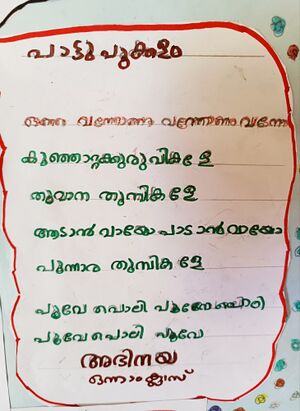 പാട്ടു പൂക്കളം
ഒത്ത വന്നോണം വന്നോണം വന്നേ
കുഞ്ഞാറ്റക്കുരുവികളേ
തൂവാന തുമ്പികളേ
ആടാൻ വായോ പാടാൻ വായോ
പുന്നാര തുമ്പികളേ
പൂവേ പൊലി പൂവേ
പൂവേ പൊലി പൂവേ
അഭിനയ
ഒന്നാം ക്ലാസ്